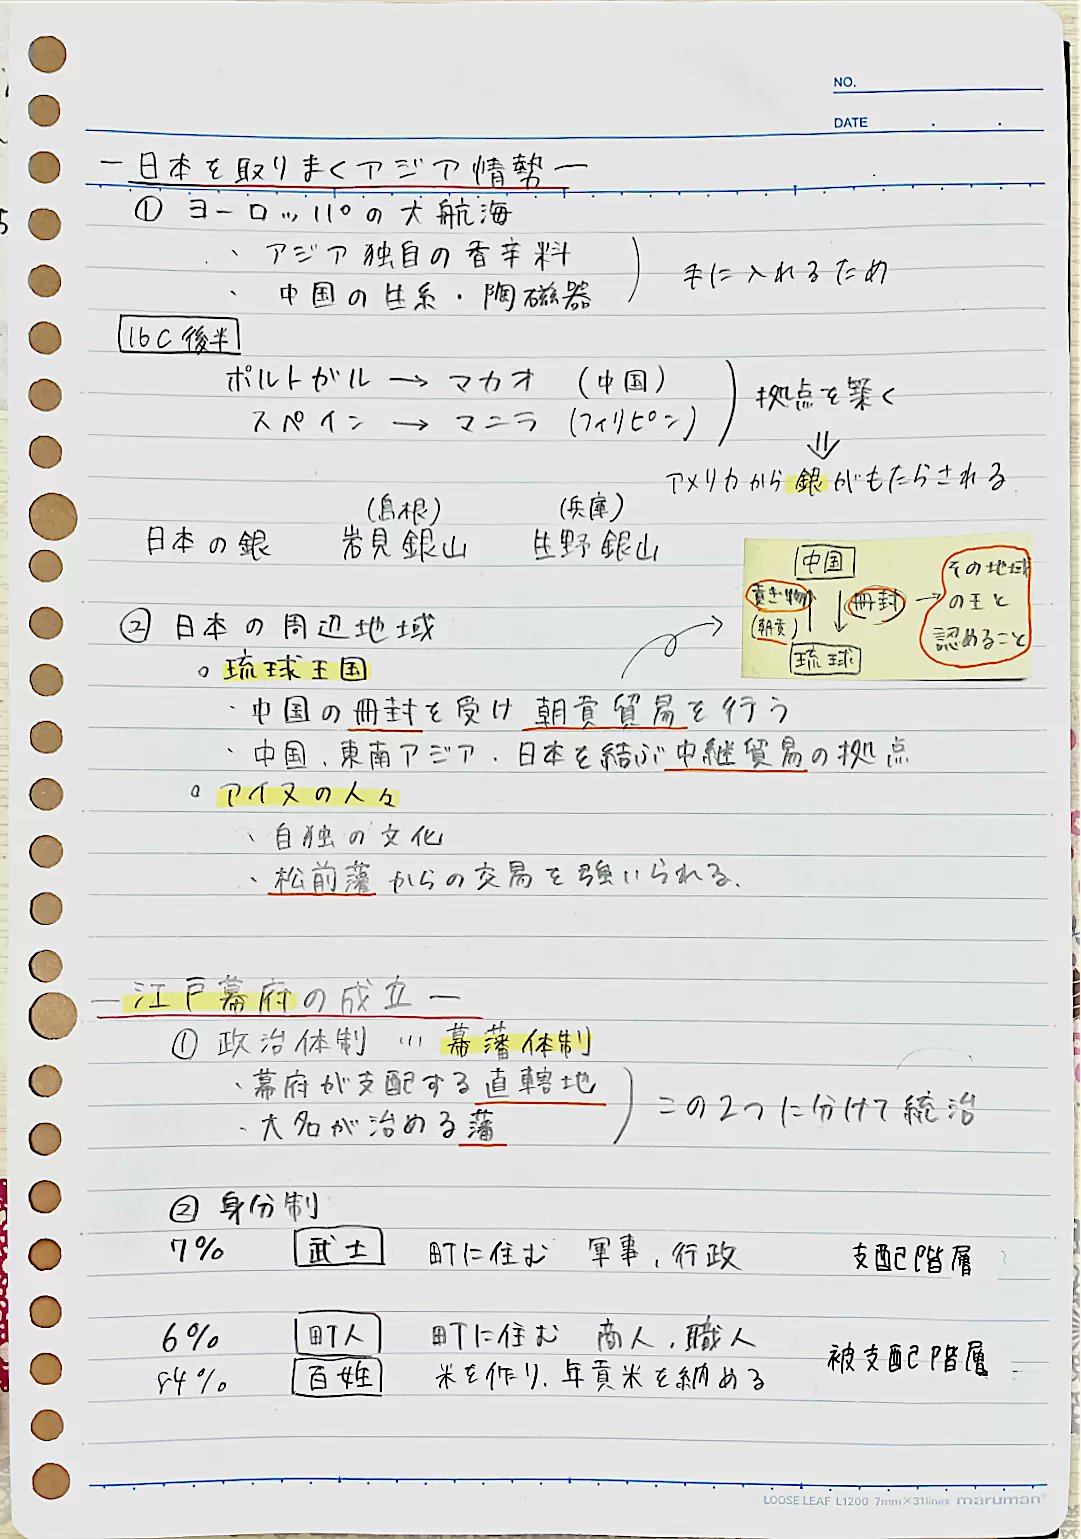 NO.
DATE
ー日本を取りまくアジア情勢ー
① ヨーロッパの大航海
・アジア独自の香辛料
・中国の生糸・陶磁器
手に入れるため
16C後半
ポルトガル → マカオ (中国)
スペイン → マニラ (フィリピン)
拠点を築く
⇓
アメリカから銀がもたらされる
(島根) (兵庫)
日本の銀 岩見銀山 生野銀山
中国
貢ぎ物
(朝貢)
冊封
琉球
→ その地域
の王と
認めること
② 日本の周辺地域
○ 琉球王国
・中国の冊封を受け朝貢貿易を行う
・中国、東南アジア・日本を結ぶ中継貿易の拠点
○ アイヌの人々
・自独の文化
・松前藩からの交易を強いられる.
ー江戸幕府の成立ー
① 政治体制 … 幕藩体制
・幕府が支配する直轄地
・大名が治める藩
この2つに分けて統治
② 身分制
7% 武士 町に住む 軍事、行政 支配階層
6% 町人 町に住む 商人、職人
被支配階層
84% 百姓 米を作り、年貢米を納める
LOOSE LEAF L1200 7mm×31lines maruman